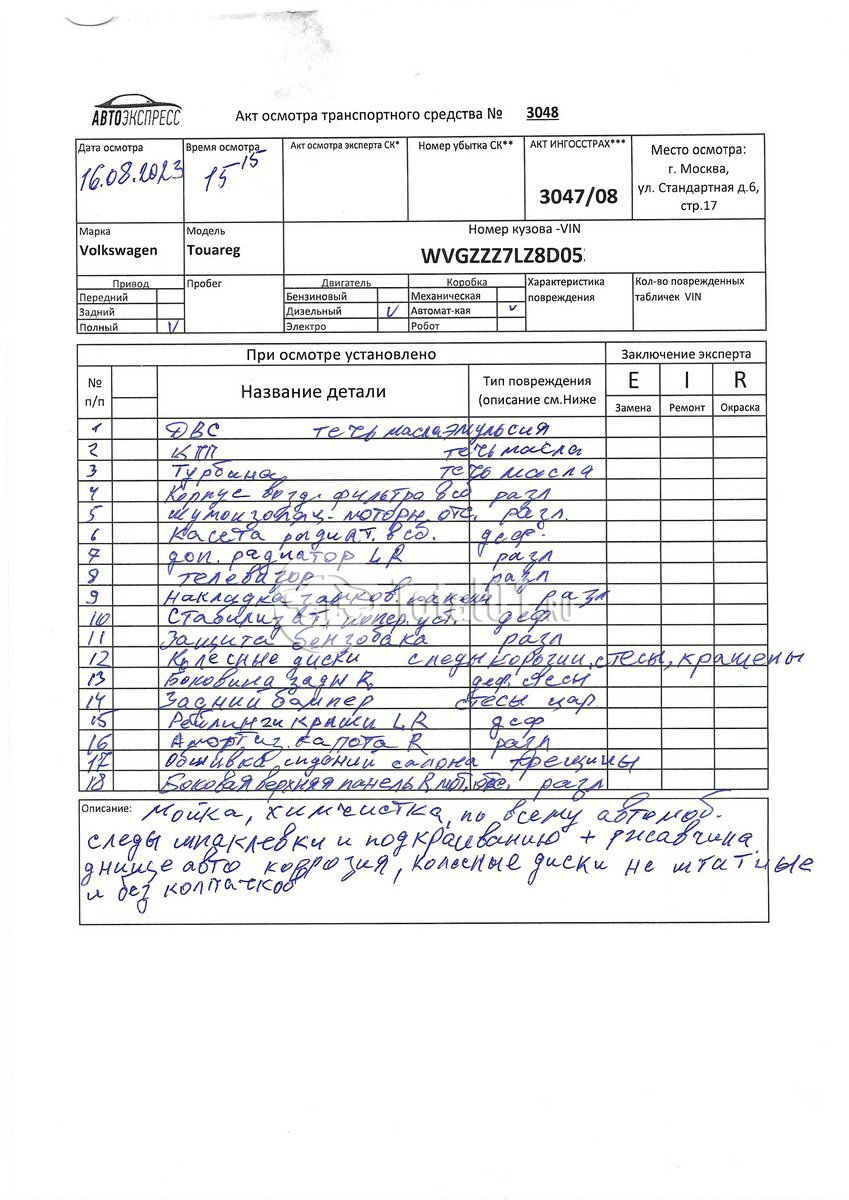 АВТОЭКСПРЕСС
Акт осмотра транспортного средства № 3048
Дата осмотра Время осмотра Акт осмотра эксперта СК* Номер убытка СК** АКТ ИНГОССТРАХ*** Место осмотра:
16.08.2023 15 15 3047/08 г. Москва,
ул. Стандартная д.6,
стр.17
Марка Модель Номер кузова -VIN
Volkswagen Touareg WVGZZZ7LZ8D05
Привод Пробег Двигатель Коробка Характеристика Кол-во поврежденных
Передний Бензиновый Механическая повреждения табличек VIN
Задний Дизельный V Автомат-кая V
Полный V Электро Робот
При осмотре установлено Заключение эксперта
№ Название детали Тип повреждения E I R
п/п (описание см.Ниже Замена Ремонт Окраска
1 ДВС течь масла эмульсия
2 КПП течь масла
3 Турбина течь масла
4 Корпус возд. фильтра в сб разл
5 шумоизоляц. моторн. отс. разл.
6 Касета радиат. в сб. деф.
7 доп. радиатор LR разл
8 телевизор разл
9 накладка замков разл
10 Стабилизат. деф
11 Защита бензобака разл
12 Колесные диски следы корозии, стесы, крашены
13 Боковина задн R деф.
14 Задний бампер стесы цар.
15 Рейлинги крыши LR деф
16 Амортиз. капота R разл
17 Обшивка сидений салона трещины
18 Боковая верхняя панель R мот. отс. разл
Описание: Мойка, химчистка, по всему автомоб.
следы шпаклевки и подкрашиванию +
днище авто коррозия, колесные диски не штатные
и без колпачков
TOTAL01.RU